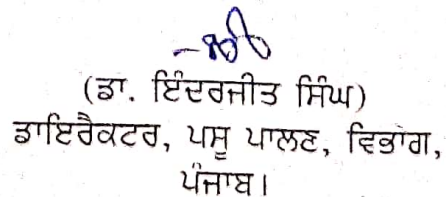 (ਡਾ. ਇੰਦਰਜੀਤ ਸਿੰਘ)
ਡਾਇਰੈਕਟਰ, ਪਸ਼ੂ ਪਾਲਣ, ਵਿਭਾਗ,
ਪੰਜਾਬ।